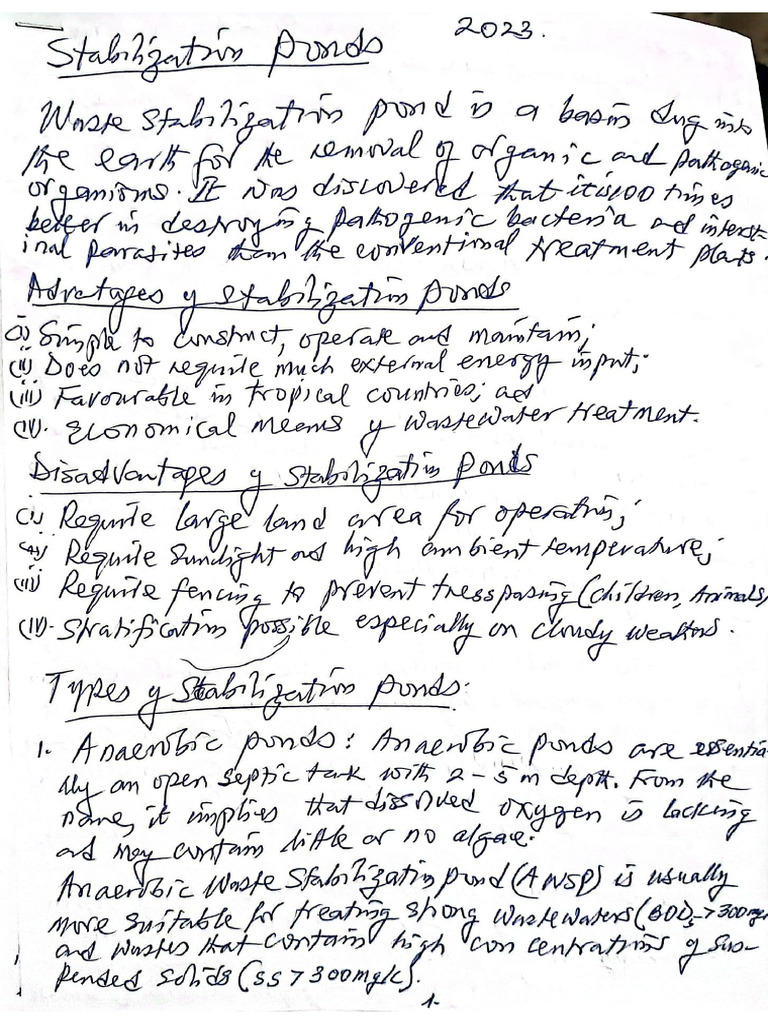 2023.
Stabilization Ponds
Waste Stabilization pond is a basin dug into
the earth for the removal of organic and pathogenic
organisms. It was discovered that it is 100 times
better in destroying pathogenic bacteria and intest-
inal parasites than the conventional treatment plants.
Advantages of Stabilization Ponds
(i) Simple to construct, operate and maintain;
(ii) Does not require much external energy input;
(iii) Favourable in tropical countries; and
(iv). Economical means of wastewater treatment.
Disadvantages of Stabilization Ponds
(i) Require large land area for operation;
(ii) Require sunlight and high ambient temperature;
(iii) Require fencing to prevent tresspasing (children, Animals,
(iv). Stratification possible especially on cloudy weathers.
Types of Stabilization Ponds.
1. Anaerobic ponds: Anaerobic ponds are essentia-
lly an open septic tank with 2-5m depth. From the
name, it implies that dissolved oxygen is lacking
and may contain little or no algae.
Anaerobic Waste Stabilization pond (AWSP) is usually
more suitable for treating strong wastewaters (BOD5 >300mg/
and wastes that contain high concentrations of sus-
pended solids (SS >300mg/L).
1-